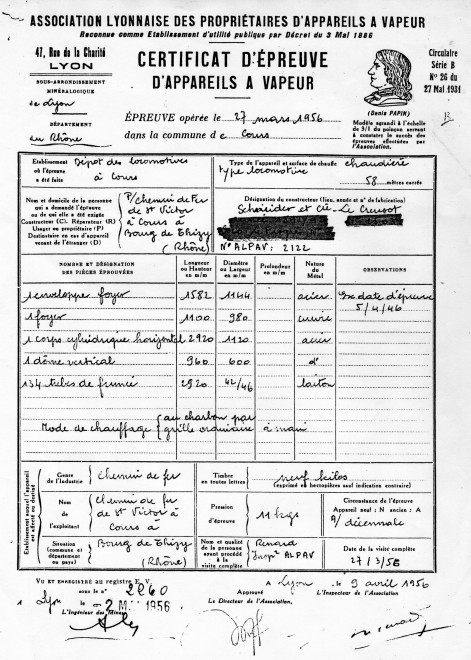 ASSOCIATION LYONNAISE DES PROPRIÉTAIRES D'APPAREILS A VAPEUR
Reconnue comme Etablissement d'utilité publique par Décret du 3 Mai 1886
47, Rue de la Charité
LYON
SOUS-ARRONDISSEMENT
MINÉRALOGIQUE
de Lyon
DÉPARTEMENT
du Rhône
CERTIFICAT D'ÉPREUVE
D'APPAREILS A VAPEUR
ÉPREUVE opérée le 27 mars 1956
dans la commune de Cours
(Denis PAPIN)
Modèle agrandi à l'échelle
de 3/1 du poinçon servant
à constater le succès des
épreuves effectuées par
l'Association.
Circulaire
Série B
N° 26 du
27 Mai 1931
Etablissement
où l'épreuve
a été faite
Dépôt des locomotives
à Cours
Type de l'appareil et surface de chauffe chaudière
type locomotive
58 mètres carrés
Nom et domicile de la personne
qui a demandé l'épreuve
ou de qui elle a été exigée
Constructeur (C). Réparateur (R)
Usager ou propriétaire (P)
Destinataire en cas d'appareil
venant de l'étranger (D)
P/chemin de Fer
de St Victor
à Cours
Bourg de Thizy
(Rhône)
Désignation du constructeur (lieu, année et n° de fabrication)
Schneider et Cie Le Creusot
N° ALPAV: 2122
NOMBRE ET DÉSIGNATION
DES PIÈCES ÉPROUVÉES
Longueur
ou Hauteur
en m/m
Diamètre
ou Largeur
en m/m
Profondeur
en m/m
Nature
du
Métal
OBSERVATIONS
1 enveloppe foyer 1582 1144 acier Ex date d'épreuve
5/4/46
1 foyer 1100 980 cuivre
1 corps cylindrique horizontal 2920 1120 acier
1 dôme vertical 960 600 d°
134 tubes de fumée 2920 42/46 laiton
Mode de chauffage { au charbon par
grille ordinaire à main
Etablissement auquel l'appareil
est affecté ou destiné
Genre
de l'Industrie
Chemin de fer
Nom
de
l'exploitant
Chemin de fer
de St Victor à
Cours à
Situation
(commune et
département
ou pays)
Bourg de Thizy
(Rhône)
Timbre
en toutes lettres
neuf kilos
(exprimé en hectopièzes sauf indication contraire)
Pression
d'épreuve
11 kgs
Circonstance de l'épreuve
Appareil neuf : N ancien : A
A/ décennale
Nom et qualité
de la personne
ayant procédé
à la
visite complète
Renard
Inspr ALPAV
Date de la visite complète
27/3/56
VU ET ENREGISTRÉ au registre E. V.
sous le n° 2260
Lyon le 2 M 1956
L'Ingénieur des Mines
A Lyon le 9 avril 1956
Approuvé
Le Directeur de l'Association,
L'Inspecteur de l'Association